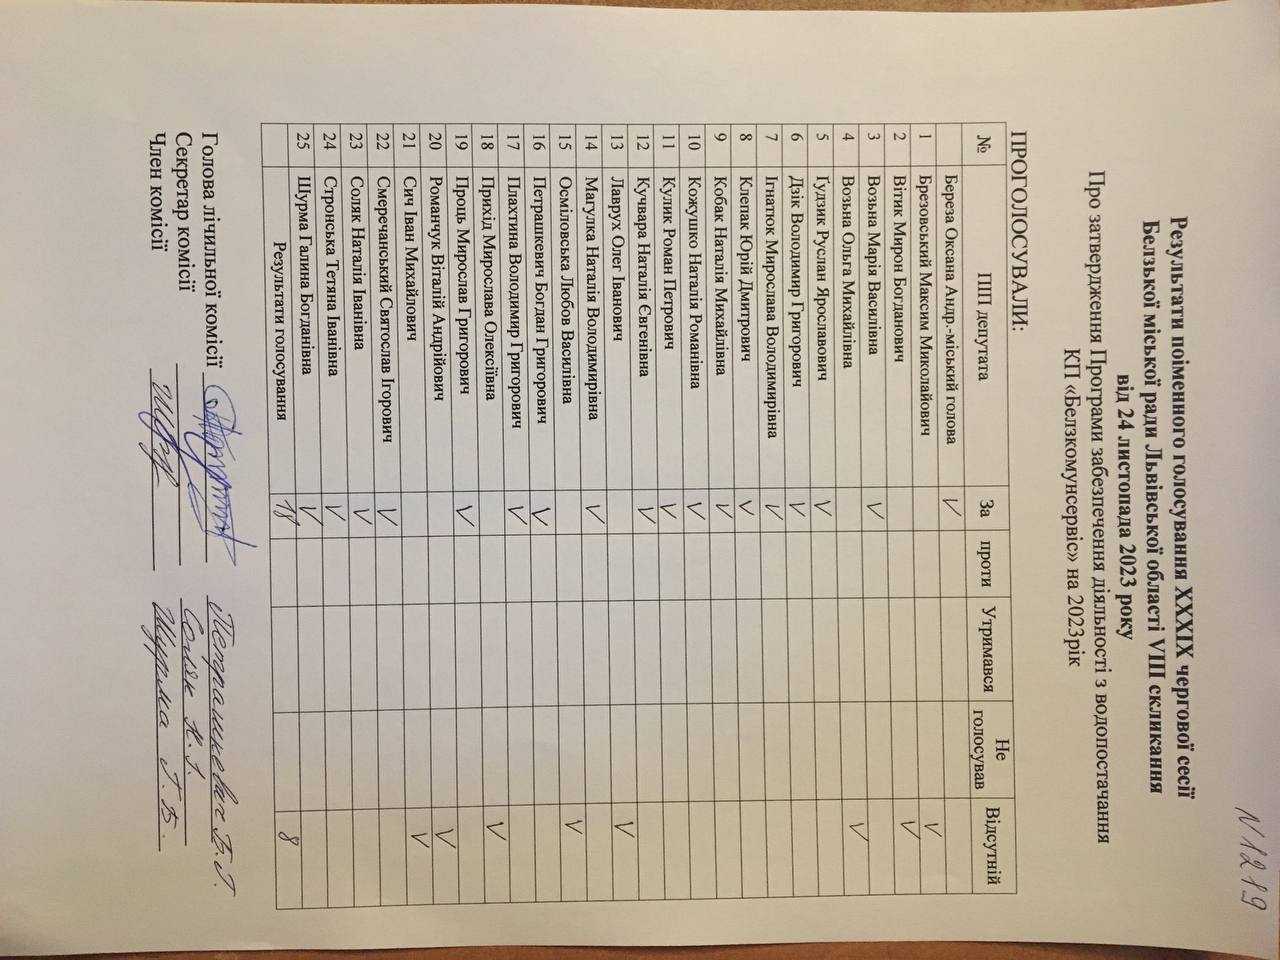 N 1219
Результати поіменного голосування XXXIX чергової сесії
Белзької міської ради Львівської області VIII скликання
від 24 листопада 2023 року
Про затвердження Програми забезпечення діяльності з водопостачання
КП «Белзкомунсервіс» на 2023рік
ПРОГОЛОСУВАЛИ:
№ ПІП депутата За проти Утримався Не голосував Відсутній
Береза Оксана Андр.-міський голова V
1 Брезовський Максим Миколайович V
2 Вітик Мирон Богданович V
3 Возьна Марія Василівна V
4 Возьна Ольга Михайлівна V
5 Ґудзик Руслан Ярославович V
6 Дзік Володимир Григорович V
7 Ігнатюк Мирослава Володимирівна V
8 Клепак Юрій Дмитрович V
9 Кобак Наталія Михайлівна V
10 Кожушко Наталія Романівна V
11 Кулик Роман Петрович V
12 Кучвара Наталія Євгенівна V
13 Лаврух Олег Іванович V
14 Магулка Наталія Володимирівна V
15 Осміловська Любов Василівна V
16 Петрашкевич Богдан Григорович V
17 Плахтина Володимир Григорович V
18 Прихід Мирослава Олексіївна V
19 Проць Мирослав Григорович V
20 Романчук Віталій Андрійович V
21 Сич Іван Михайлович V
22 Смеречанський Святослав Ігорович V
23 Соляк Наталія Іванівна V
24 Стронська Тетяна Іванівна V
25 Шурма Галина Богданівна V
Результати голосування 18 8
Голова лічильної комісії Петрашкевич Б.Г.
Секретар комісії Соляк Н.І.
Член комісії Шурма Г.Б.